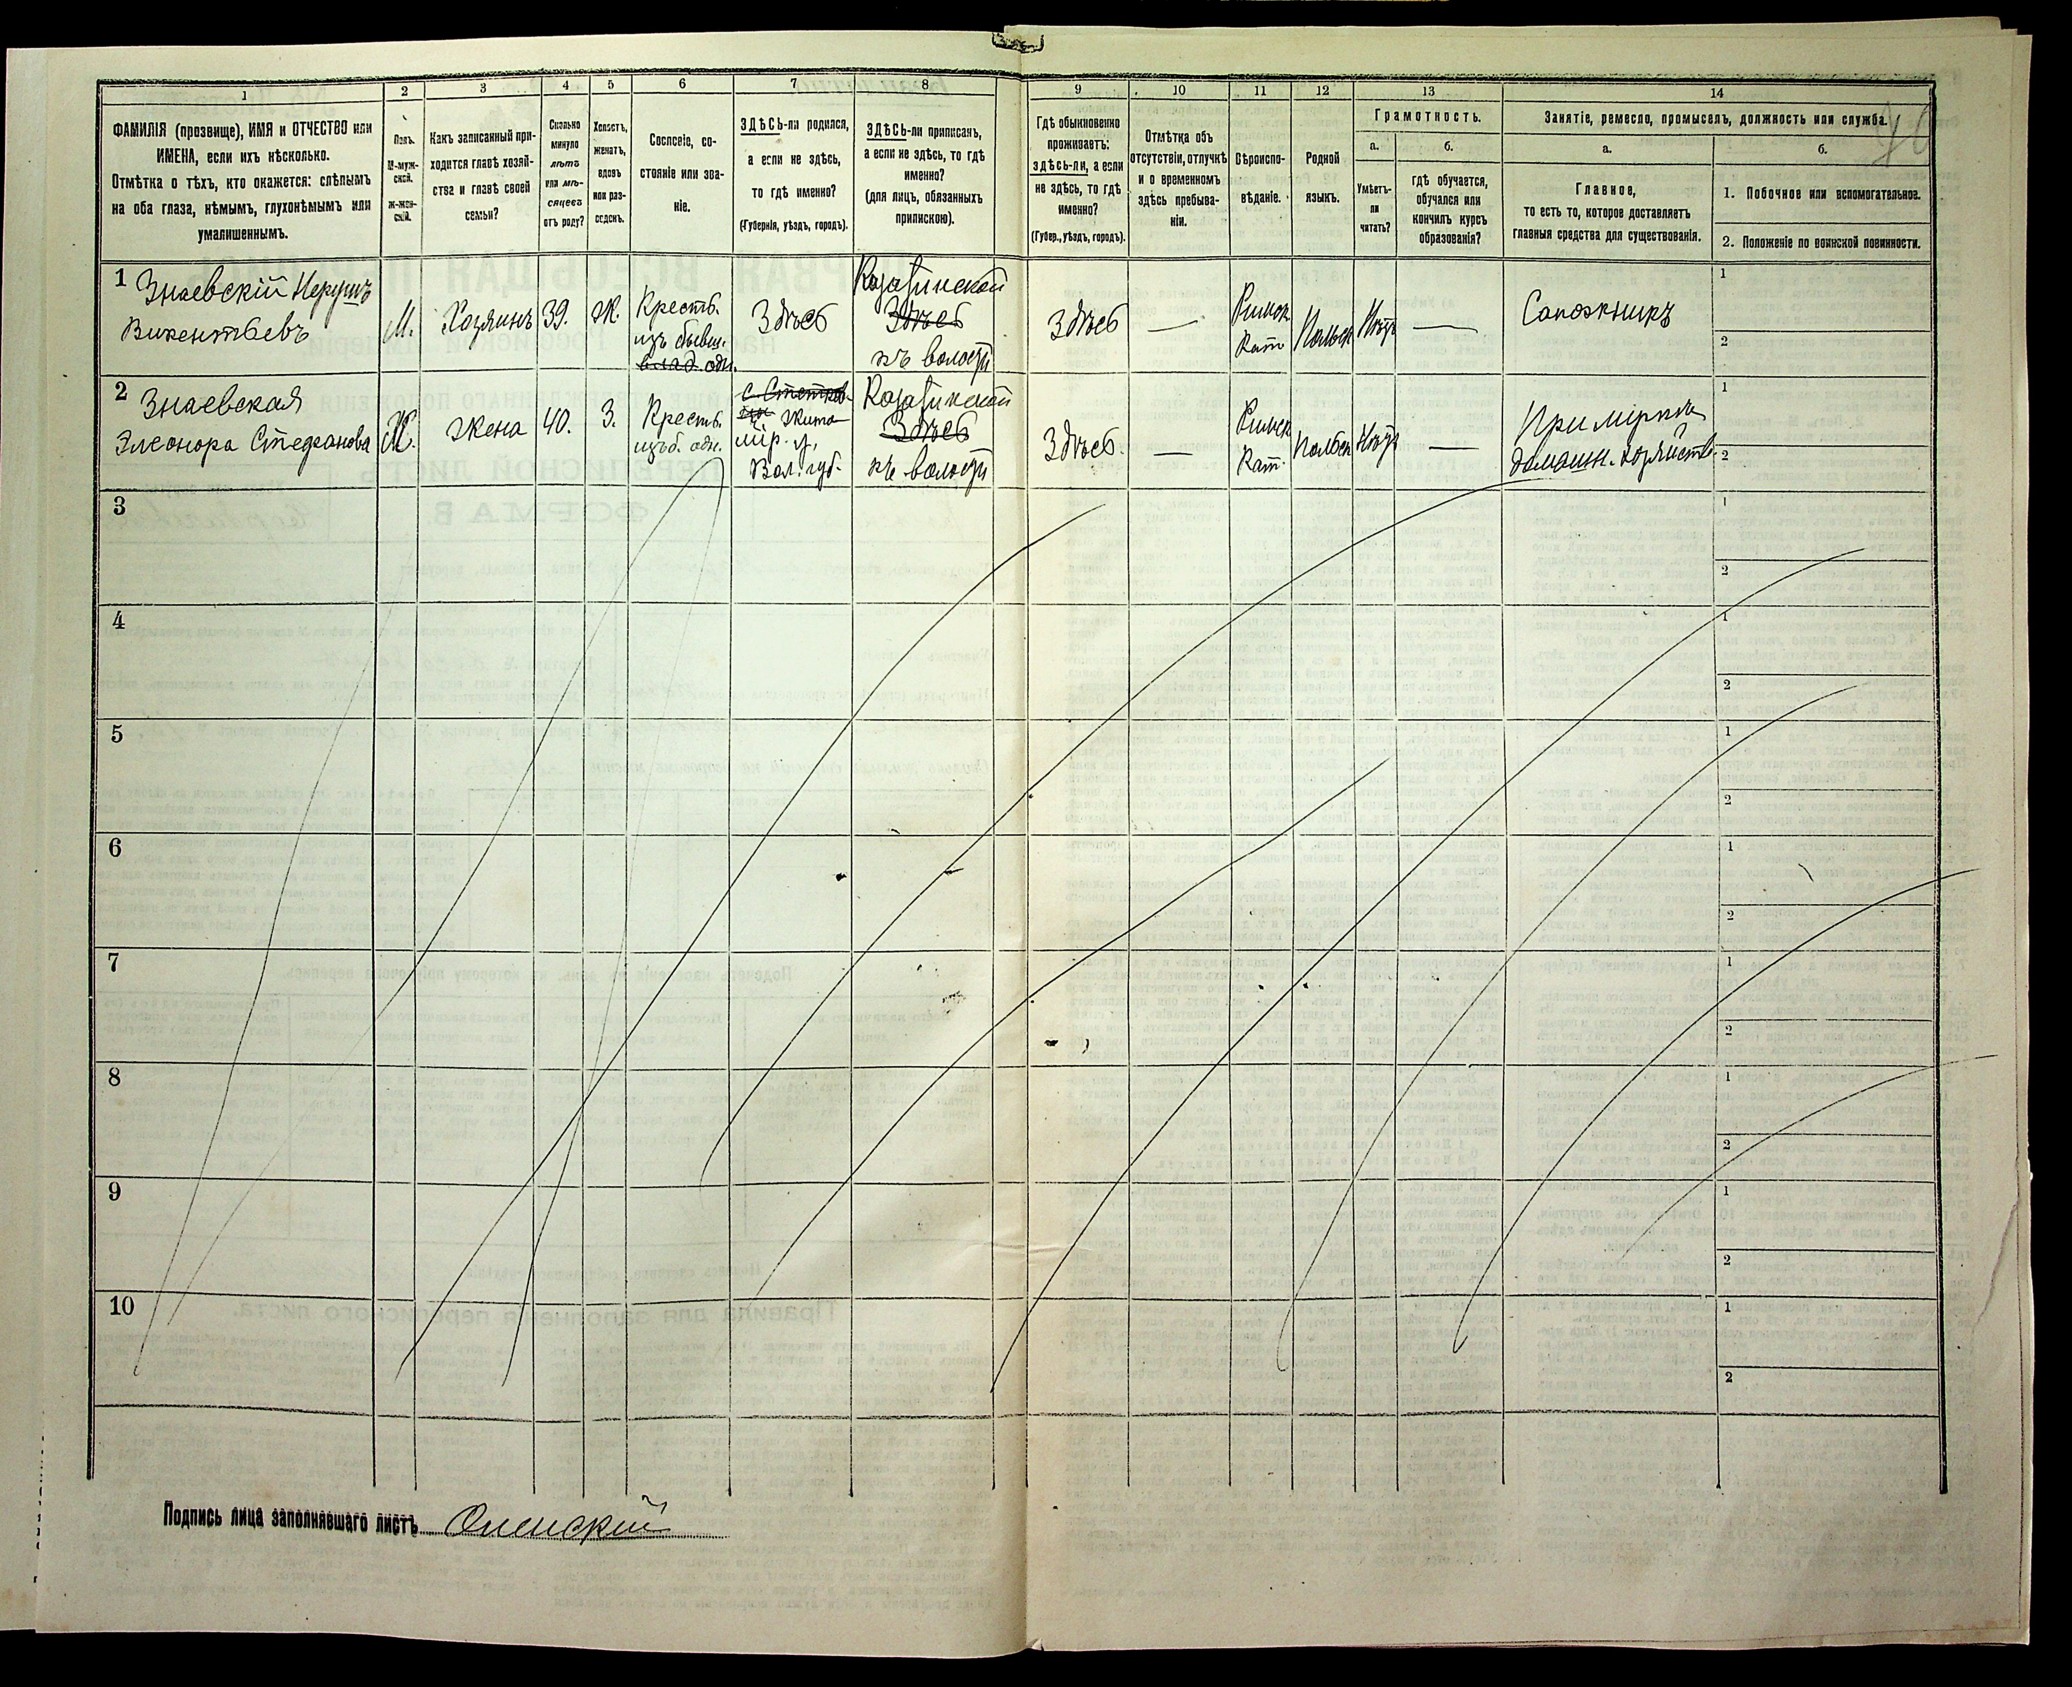 1
2
3
4
5
6
7
8
9
10
11
12
13
14
ФАМИЛІЯ (прозвище), ИМЯ и ОТЧЕСТВО или
ИМЕНА, если ихъ нѣсколько.
Отмѣтка о тѣхъ, кто окажется: слѣпымъ
на оба глаза, нѣмымъ, глухонѣмымъ или
умалишеннымъ.
Полъ.
М-муж-
ской.
ж-жен-
скій.
Какъ записанный при-
ходится главѣ хозяй-
ства и главѣ своей
семьи?
Сколько
минуло
лѣтъ
или мѣ-
сяцевъ
отъ роду?
Холостъ,
женатъ,
вдовъ
или раз-
веденъ.
Сословіе, со-
стояніе или зва-
ніе.
ЗДѢСЬ-ли родился,
а если не здѣсь,
то гдѣ именно?
(Губернія, уѣздъ, городъ).
ЗДѢСЬ-ли приписанъ,
а если не здѣсь, то гдѣ
именно?
(для лицъ, обязанныхъ
припискою).
Гдѣ обыкновенно
проживаетъ:
здѣсь-ли, а если
не здѣсь, то гдѣ
именно?
(Губер., уѣздъ, городъ).
Отмѣтка объ
отсутствіи, отлучкѣ
и о временномъ
здѣсь пребыва-
ніи.
Вѣроиспо-
вѣданіе.
Родной
языкъ.
Грамотность.
а.
Умѣетъ-
ли
читать?
б.
гдѣ обучается,
обучался или
кончилъ курсъ
образованія?
Занятіе, ремесло, промыселъ, должность или служба.
а.
Главное,
то есть то, которое доставляетъ
главныя средства для существованія.
б.
1. Побочное или вспомогательное.
2. Положеніе по воинской повинности.
1
Знаевскій
Викентьевъ
М.
Хозяинъ
39.
Ж.
Крестъ.
изъ бывш.
влад. одн.
Здѣсь
Здѣсь
къ волости
Здѣсь
—
Римск
Кат
Польск
Нѣтъ
—
Сапожникъ
1
2
2
Знаевская
Элеонора Стефанова
Ж.
Жена
40.
З.
Крестъ.
изъ б. одн.
Жито
мір. у.
Вол. губ.
Здѣсь
къ волости
Здѣсь.
—
Римск
Кат.
Польск
Нѣтъ
—
При мужѣ
домашн. хозяйств.
1
2
3
1
2
4
1
2
5
1
2
6
1
2
7
1
2
8
1
2
9
1
2
10
1
2
Подпись лица заполнявшаго листъ